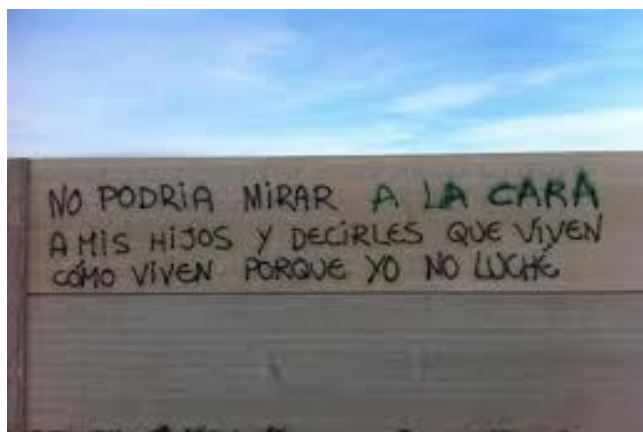 NO PODRIA MIRAR A LA CARA
A MIS HIJOS Y DECIRLES QUE VIVEN
CÓMO VIVEN PORQUE YO NO LUCHÉ